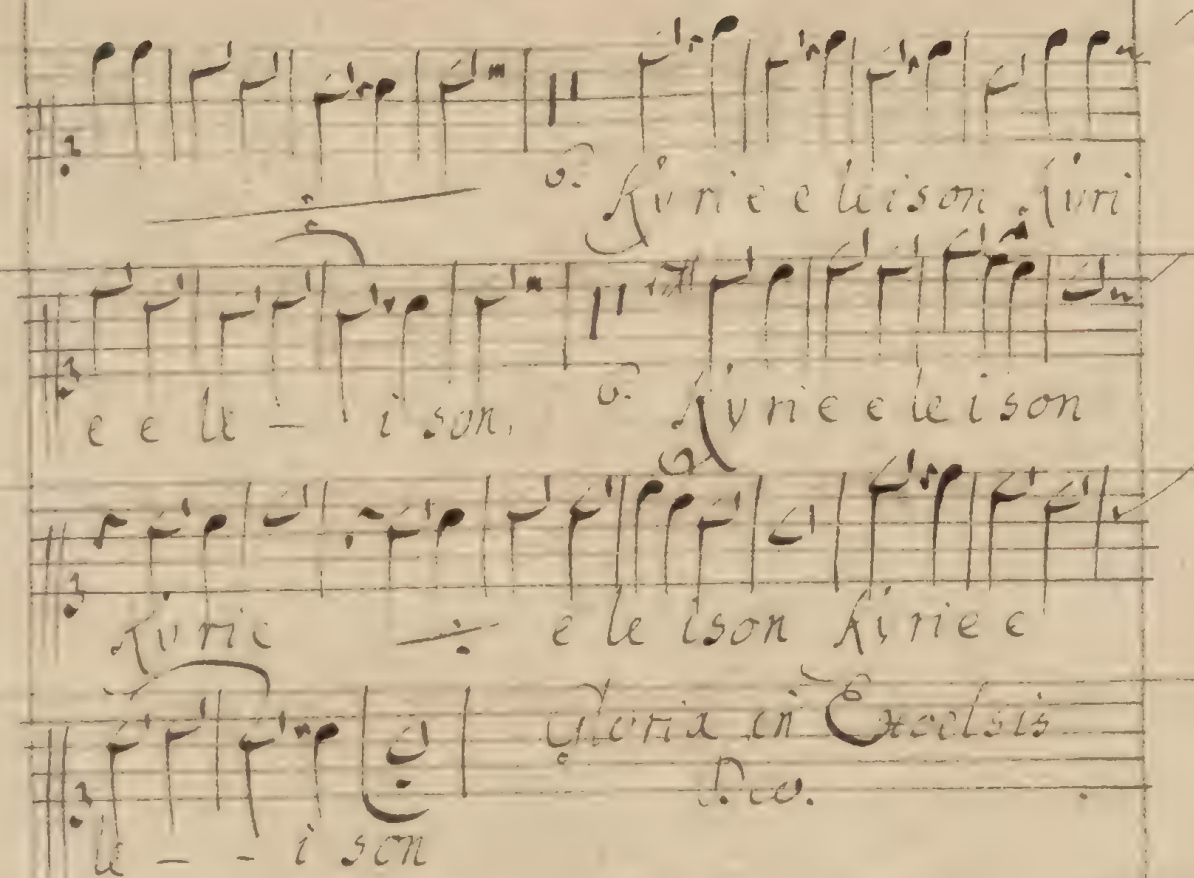 v. Kyrie eleison Kyri
e e le - i son, v. Kyrie eleison
Kyrie e leison Kyrie e
le - - i son Gloria in Excelsis
Deo.